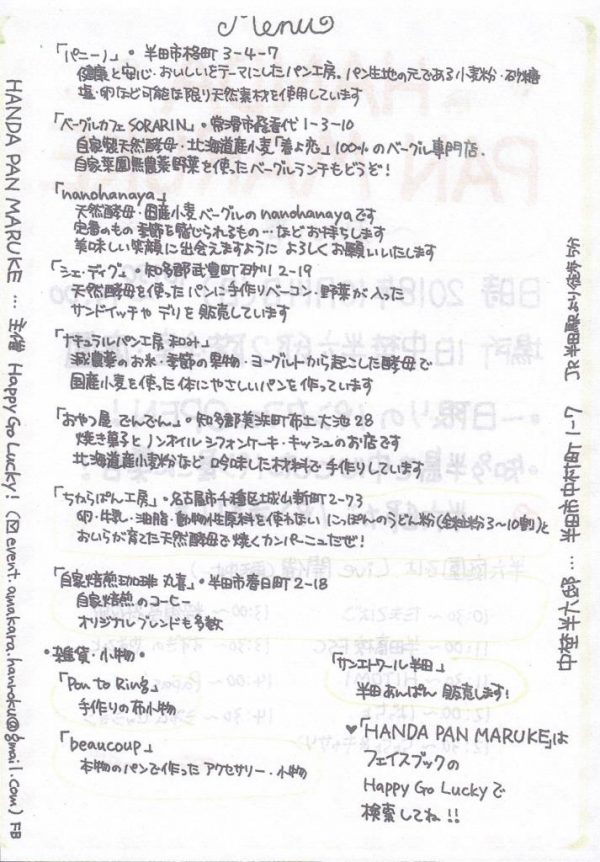 Menu
「パニーノ」・半田市柊町3-4-7
健康と安心・おいしいをテーマにしたパン工房。パン生地の元である小麦粉・砂糖
塩・卵など可能な限り天然素材を使用しています
「ベーグルカフェSORARIN」・常滑市飛香代1-3-10
自家製天然酵母・北海道産小麦「春よ恋」100%のベーグル専門店.
自家菜園無農薬野菜を使ったベーグルランチもどうぞ!
「nanohanaya」
天然酵母・国産小麦ベーグルのnanohanayaです
定番のもの 季節を感じられるもの…などお持ちします
美味しい笑顔に出会えますように よろしくお願いいたします
「シェ・ディグ」・知多郡武豊町砂川2-19
天然酵母を使ったパンに手作りベーコン・野菜が入った
サンドイッチや デリを販売しています
「ナチュラルパン工房 和み」
減農薬のお米・季節の果物・ヨーグルトから起こした酵母で
国産小麦を使った体にやさしいパンを作っています
「おやつ屋 でんでん」・知多郡美浜町布土大池28
焼き菓子と ノンオイルシフォンケーキ・キッシュのお店です
北海道産小麦粉など 吟味した材料で 手作りしています
「ちからぱん工房」・名古屋市千種区城山新町2-73
卵・牛乳・油脂・動物性原料を使わない にっぽんのうどん粉(全粒粉3~10割)と
おいらが育てた天然酵母で焼くカンパーニュだぜ!
「自家焙煎珈琲 丸喜」・半田市春日町2-18
自家焙煎のコーヒー
オリジナルブレンドも多数
・雑貨・小物・
「Pan to Ring」
手作りの布小物
「beaucoup」
本物のパンで作った アクセサリー・小物
「サンエトワール半田」
半田あんぱん 販売します!
♥「HANDA PAN MARUKE」は
フェイスブックの
Happy Go Luckyで
検索してね!!
HANDA PAN MARUKE … 主催 Happy Go Lucky! (✉event.amakara.hanroku@gmail.com) FB
中埜半六邸 … 半田市中村町1-7 JR半田駅より徒歩5分